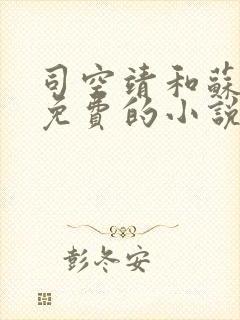 司空靖和蘇
免費的小說
彭冬安